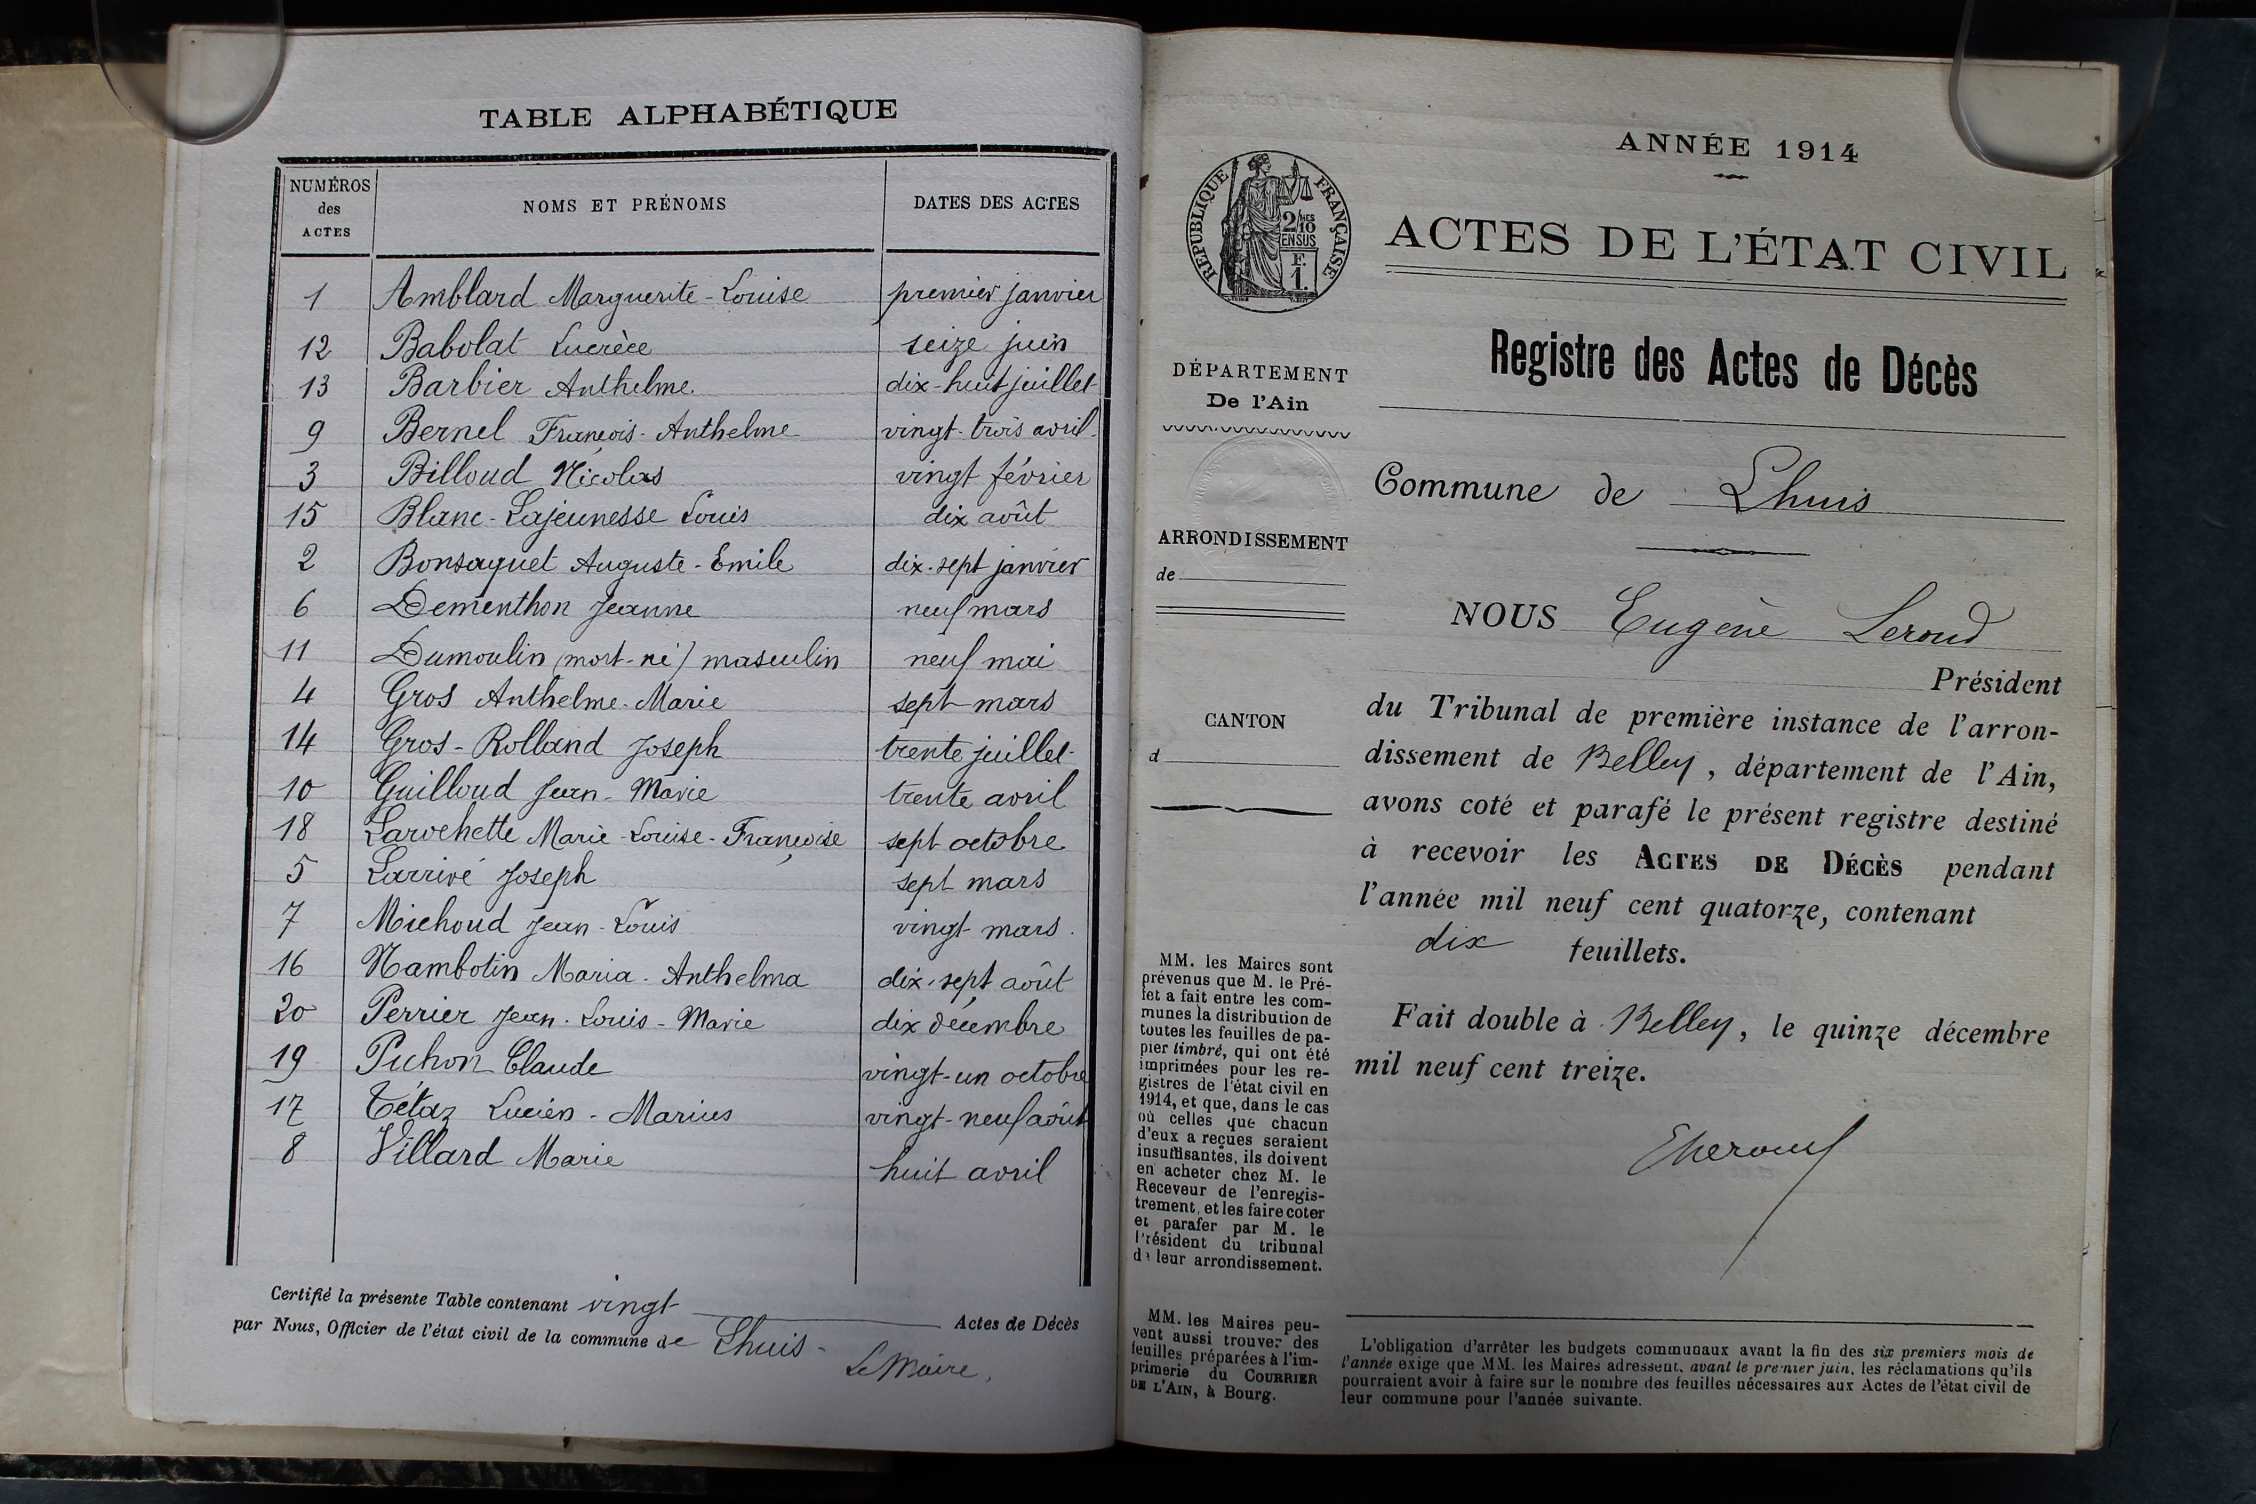 TABLE ALPHABÉTIQUE
NUMÉROS des ACTES NOMS ET PRÉNOMS DATES DES ACTES
1 Amblard Marguerite-Louise premier janvier
12 Babolat Lucrèce seize juin
13 Barbier Anthelme dix-huit juillet
9 Bernel François-Anthelme vingt-trois avril
3 Billoud Nicolas vingt février
15 Blanc-Lajeunesse Louis dix août
2 Bonsaquet Auguste-Emile dix-sept janvier
6 Dementhon Jeanne neuf mars
11 Dumoulin (mort-né) masculin neuf mai
4 Gros Anthelme-Marie sept mars
14 Gros-Rolland Joseph trente juillet
10 Guilloud Jean-Marie trente avril
18 Larochette Marie-Louise-Françoise sept octobre
5 Larrivé Joseph sept mars
7 Michoud Jean-Louis vingt mars
16 Nambotin Maria-Anthelma dix-sept août
20 Perrier Jean-Louis-Marie dix décembre
19 Pichon Claude vingt-un octobre
17 Tétaz Lucien-Marius vingt-neuf août
8 Villard Marie huit avril
Certifié la présente Table contenant vingt Actes de Décès
par Nous, Officier de l'état civil de la commune de Lhuis-
Le Maire,
ANNÉE 1914
RÉPUBLIQUE FRANÇAISE
2/10 MES
EN SUS
F.
1.
ACTES DE L'ÉTAT CIVIL
Registre des Actes de Décès
DÉPARTEMENT
De l'Ain
Commune de Lhuis
ARRONDISSEMENT
de
NOUS Eugène Leroud
Président
du Tribunal de première instance de l'arron-
dissement de Belley, département de l'Ain,
avons coté et parafé le présent registre destiné
à recevoir les ACTES DE DÉCÈS pendant
l'année mil neuf cent quatorze, contenant
dix feuillets.
Fait double à Belley, le quinze décembre
mil neuf cent treize.
CANTON
d
MM. les Maires sont
prévenus que M. le Pré-
fet a fait entre les com-
munes la distribution de
toutes les feuilles de pa-
pier timbré, qui ont été
imprimées pour les re-
gistres de l'état civil en
1914, et que, dans le cas
où celles que chacun
d'eux a reçues seraient
insuffisantes, ils doivent
en acheter chez M. le
Receveur de l'enregis-
trement, et les faire coter
et parafer par M. le
Président du tribunal
de leur arrondissement.
MM. les Maires peu-
vent aussi trouver des
feuilles préparées à l'im-
primerie du COURRIER
DE L'AIN, à Bourg.
L'obligation d'arrêter les budgets communaux avant la fin des six premiers mois de
l'année exige que MM. les Maires adressent, avant le premier juin, les réclamations qu'ils
pourraient avoir à faire sur le nombre des feuilles nécessaires aux Actes de l'état civil de
leur commune pour l'année suivante.